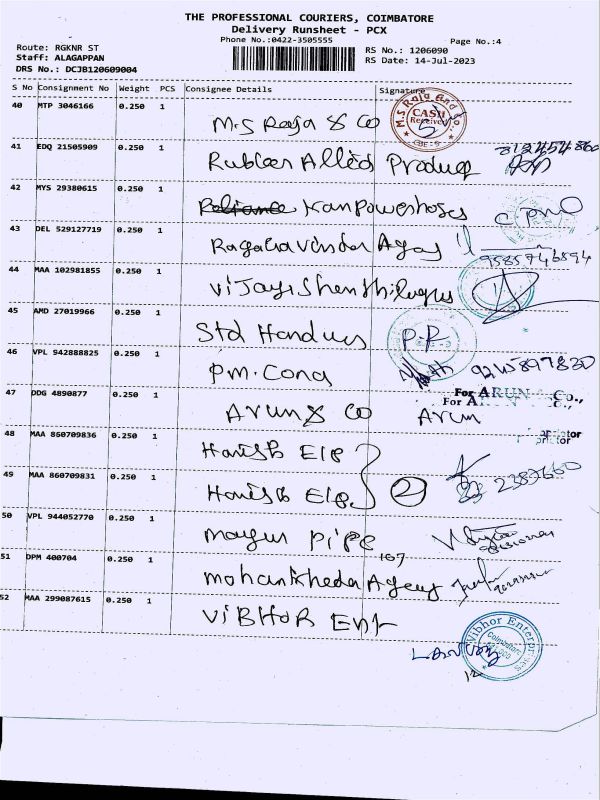 THE PROFESSIONAL COURIERS, COIMBATORE
Delivery Runsheet - PCX
Phone No.:0422-3505555
Page No.:4
Route: RGKNR ST
Staff: ALAGAPPAN
DRS No.: DCJB120609004
RS No.: 1206090
RS Date: 14-Jul-2023
S No Consignment No Weight PCS Consignee Details Signature
40 MTP 3046166 0.250 1 M.S Raja & Co
M.S Raja And Co. CASH Received CBE-9
41 EDQ 21505909 0.250 1 Rubber Allied
42 MYS 29380615 0.250 1 Reliance Kanpowerhoses
43 DEL 529127719 0.250 1
9585746894
44 MAA 102981855 0.250 1
45 AMD 27019966 0.250 1 Std P.R
46 VPL 942888825 0.250 1 P.M. Cong
47 DDG 4890877 0.250 1 Arun & Co Arun
For ARUN & Co.,
48 MAA 860709836 0.250 1 Harish Ele
49 MAA 860709831 0.250 1 Harish Ele 2
50 VPL 944052770 0.250 1 mayur Pipe
51 DPM 400704 0.250 1 107
52 MAA 299087615 0.250 1 ViBHOR Ent
Vibhor Enterprises Coimbatore
12